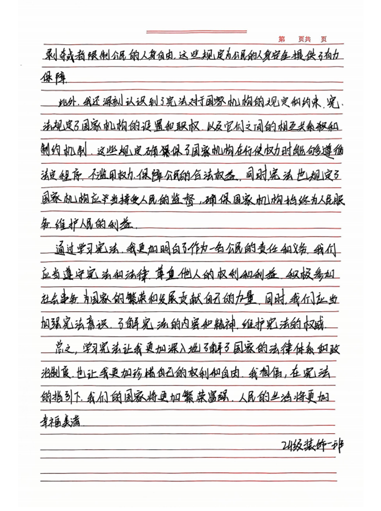 第 页共 页
剥夺或者限制公民的人身自由,这些规定为公民的人身安全提供了有力
保障。
此外,我还深刻认识到了宪法对于国家机构的规定和约束,宪
法规定了国家机构的设置和职权,以及它们之间的相互关系和
制约机制,这些规定确保了国家机构在行使权力时能够遵循
法定程序,不滥用权力,保障人民的合法权益,同时宪法也规定了
国家机构应当接受人民的监督,确保国家机构始终为人民服
务,维护人民的利益。
通过学习宪法,我更加明白了作为一名公民的责任和义务,我们
应当遵守宪法和法律,尊重他人的权利和利益,积极参加
社会事务,为国家的繁荣和发展贡献自己的力量,同时,我们应当
加强宪法意识,了解宪法的内容和精神,维护宪法的权威。
总之,学习宪法让我更加深入地了解了国家的法律体系和政
治制度,也让我更加珍惜自己的权利和自由,我相信,在宪法
的指引下,我们的国家将更加繁荣富强,人民的生活将更加
幸福美满。
21级装饰一班